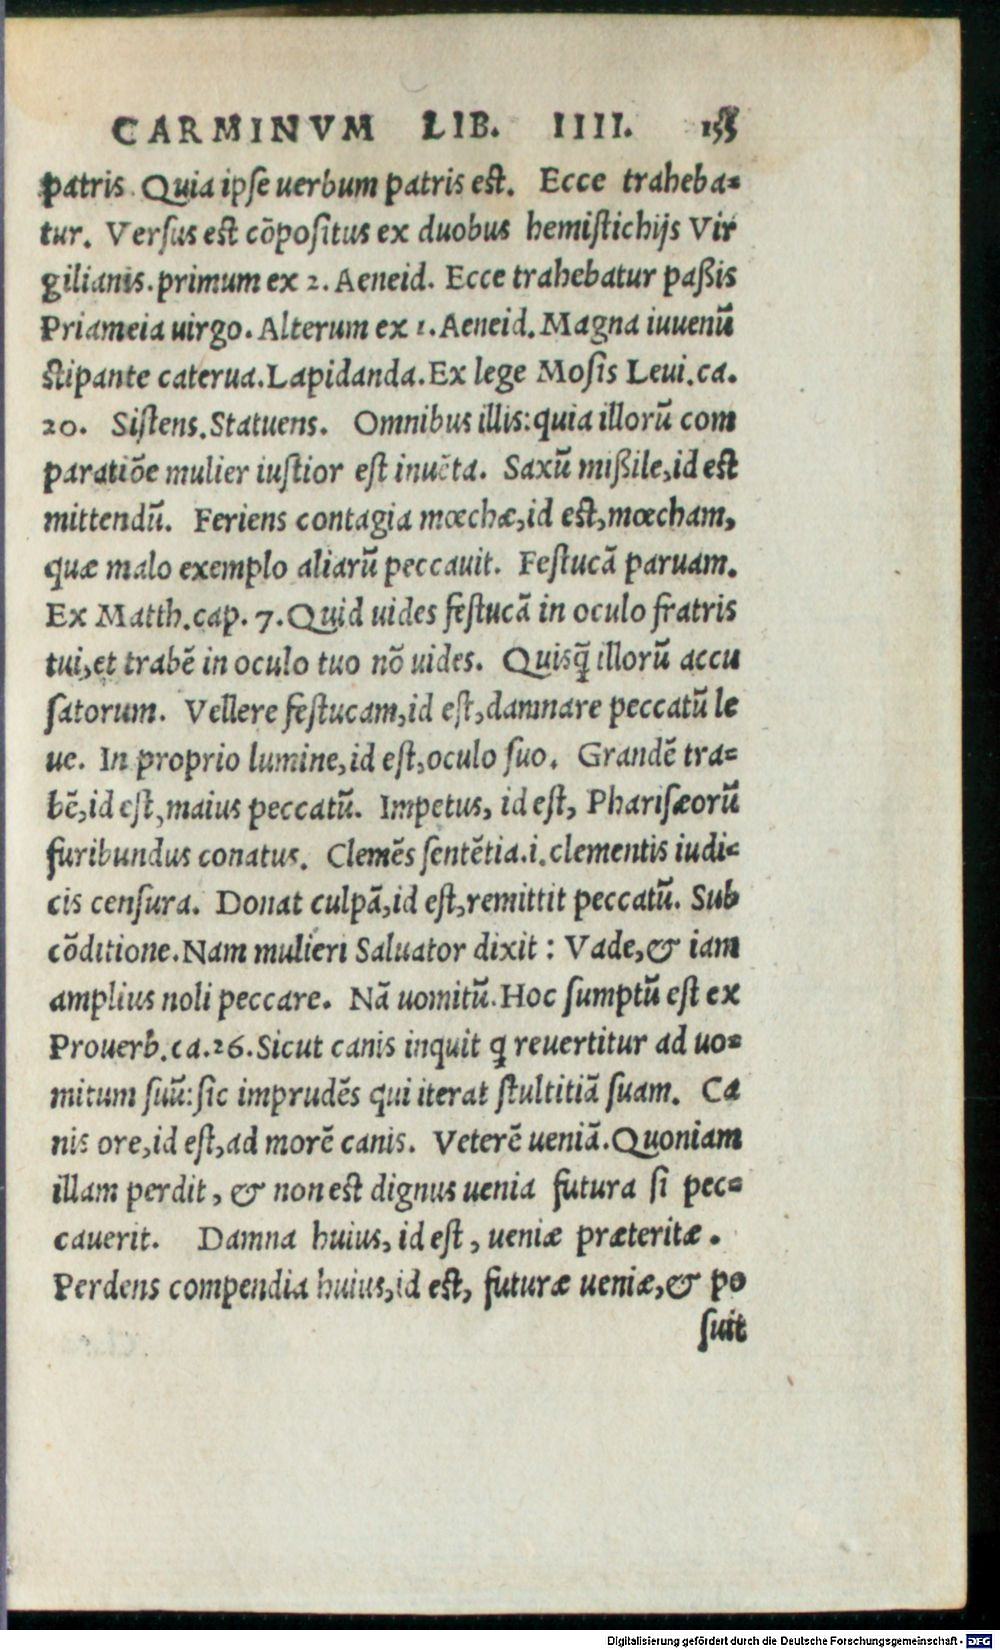 CARMINVM LIB. IIII. 155
patris. Quia ipse uerbum patris est. Ecce traheba=
tur. Versus est cōpositus ex duobus hemistichijs Vir
gilianis. primum ex 2. Aeneid. Ecce trahebatur paßis
Priameia uirgo. Alterum ex 1. Aeneid. Magna iuuenū
stipante caterua. Lapidanda. Ex lege Mosis Leui. ca.
20. Sistens. Statuens. Omnibus illis: quia illorū com
paratiōe mulier iustior est inuēta. Saxū mißile, id est
mittendū. Feriens contagia mœchæ, id est, mœcham,
quæ malo exemplo aliarū peccauit. Festucā paruam.
Ex Matth. cap. 7. Quid uides festucā in oculo fratris
tui, et trabē in oculo tuo nō uides. Quisq̃ illorū accu
satorum. Vellere festucam, id est, damnare peccatū le
ue. In proprio lumine, id est, oculo suo. Grandē tra=
bē, id est, maius peccatū. Impetus, id est, Pharisæorū
furibundus conatus. Clemēs sentētia .i. clementis iudi=
cis censura. Donat culpā, id est, remittit peccatū. Sub
cōditione. Nam mulieri Saluator dixit: Vade, & iam
amplius noli peccare. Nā uomitū. Hoc sumptū est ex
Prouerb. ca. 26. Sicut canis inquit q̃ reuertitur ad uo=
mitum suū: sic imprudēs qui iterat stultitiā suam. Ca
nis ore, id est, ad morē canis. Veterē ueniā. Quoniam
illam perdit, & non est dignus uenia futura si pec=
cauerit. Damna huius, id est, ueniæ præteritæ.
Perdens compendia huius, id est, futuræ ueniæ, & po
suit
Digitalisierung gefördert durch die Deutsche Forschungsgemeinschaft - DFG